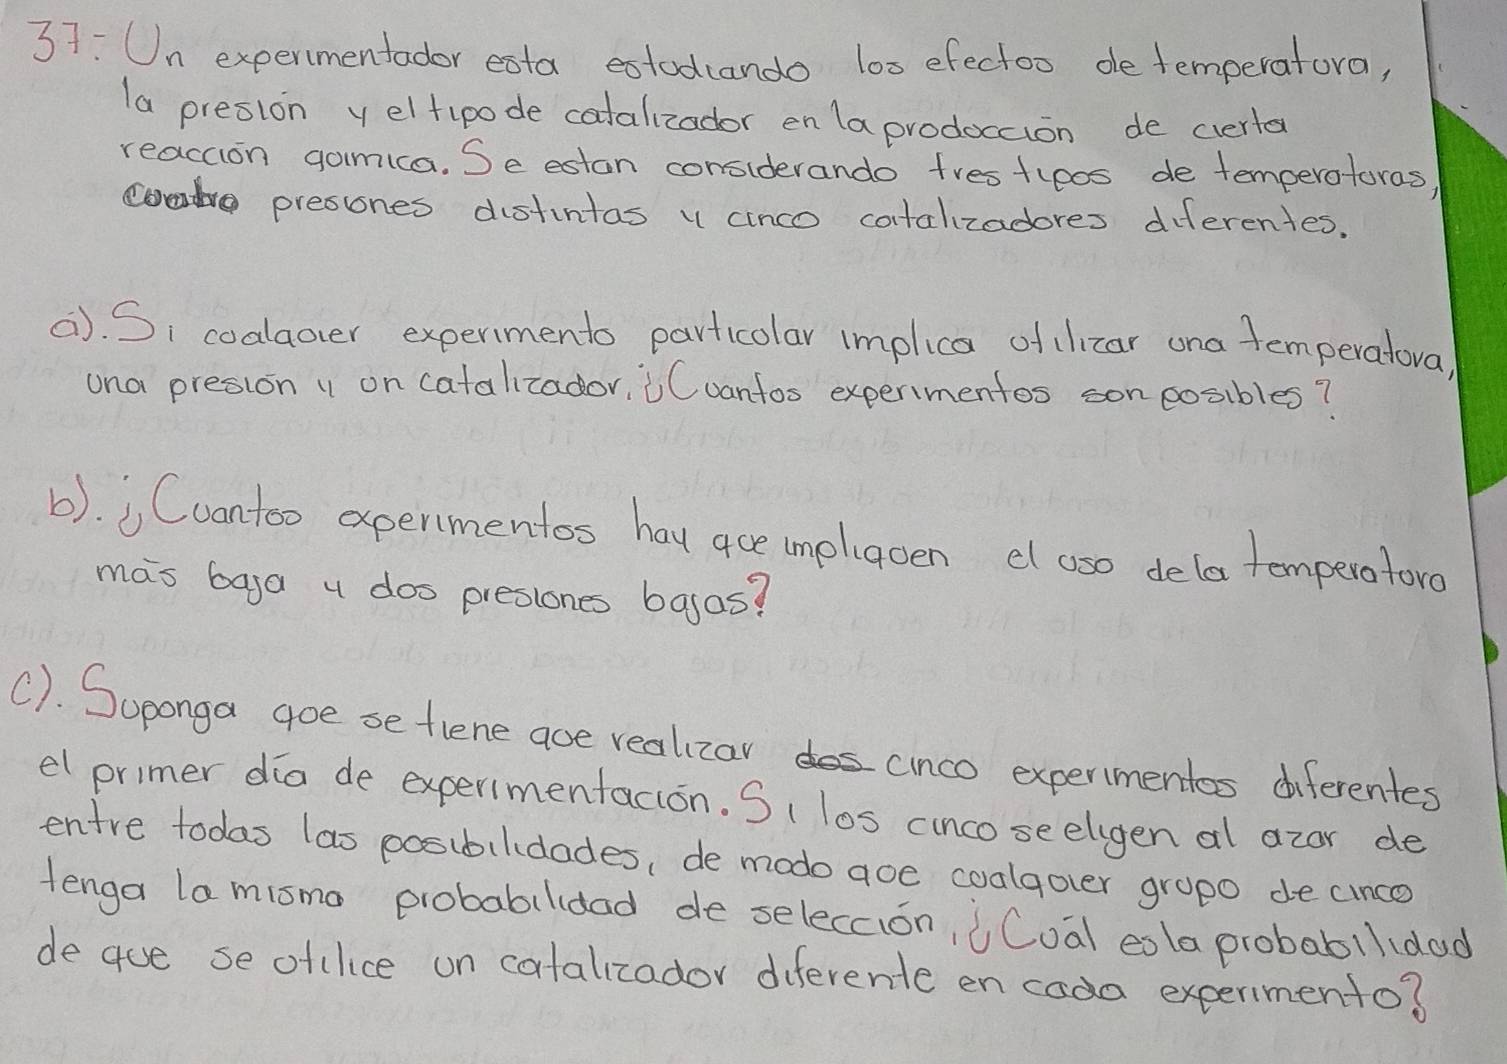 37. Un experimentador esta estudiando los efectos de temperatura,
la presión y el tipo de catalizador en la producción de cierta
reacción quimica. Se estan considerando tres tipos de temperaturas,
cuatro presiones distintas y cinco catalizadores diferentes.
a). Si cualquier experimento particular implica utilizar una temperatura,
una presión y un catalizador, ¿Cuantos experimentos son posibles?
b). ¿Cuantos experimentos hay que impliquen el uso de la temperatura
más baja y dos presiones bajas?
c). Suponga que se tiene que realizar dos cinco experimentos diferentes
el primer día de experimentación. Si los cinco se eligen al azar de
entre todas las posibilidades, de modo que cualquier grupo de cinco
tenga la misma probabilidad de selección, ¿Cuál es la probabilidad
de que se utilice un catalizador diferente en cada experimento?